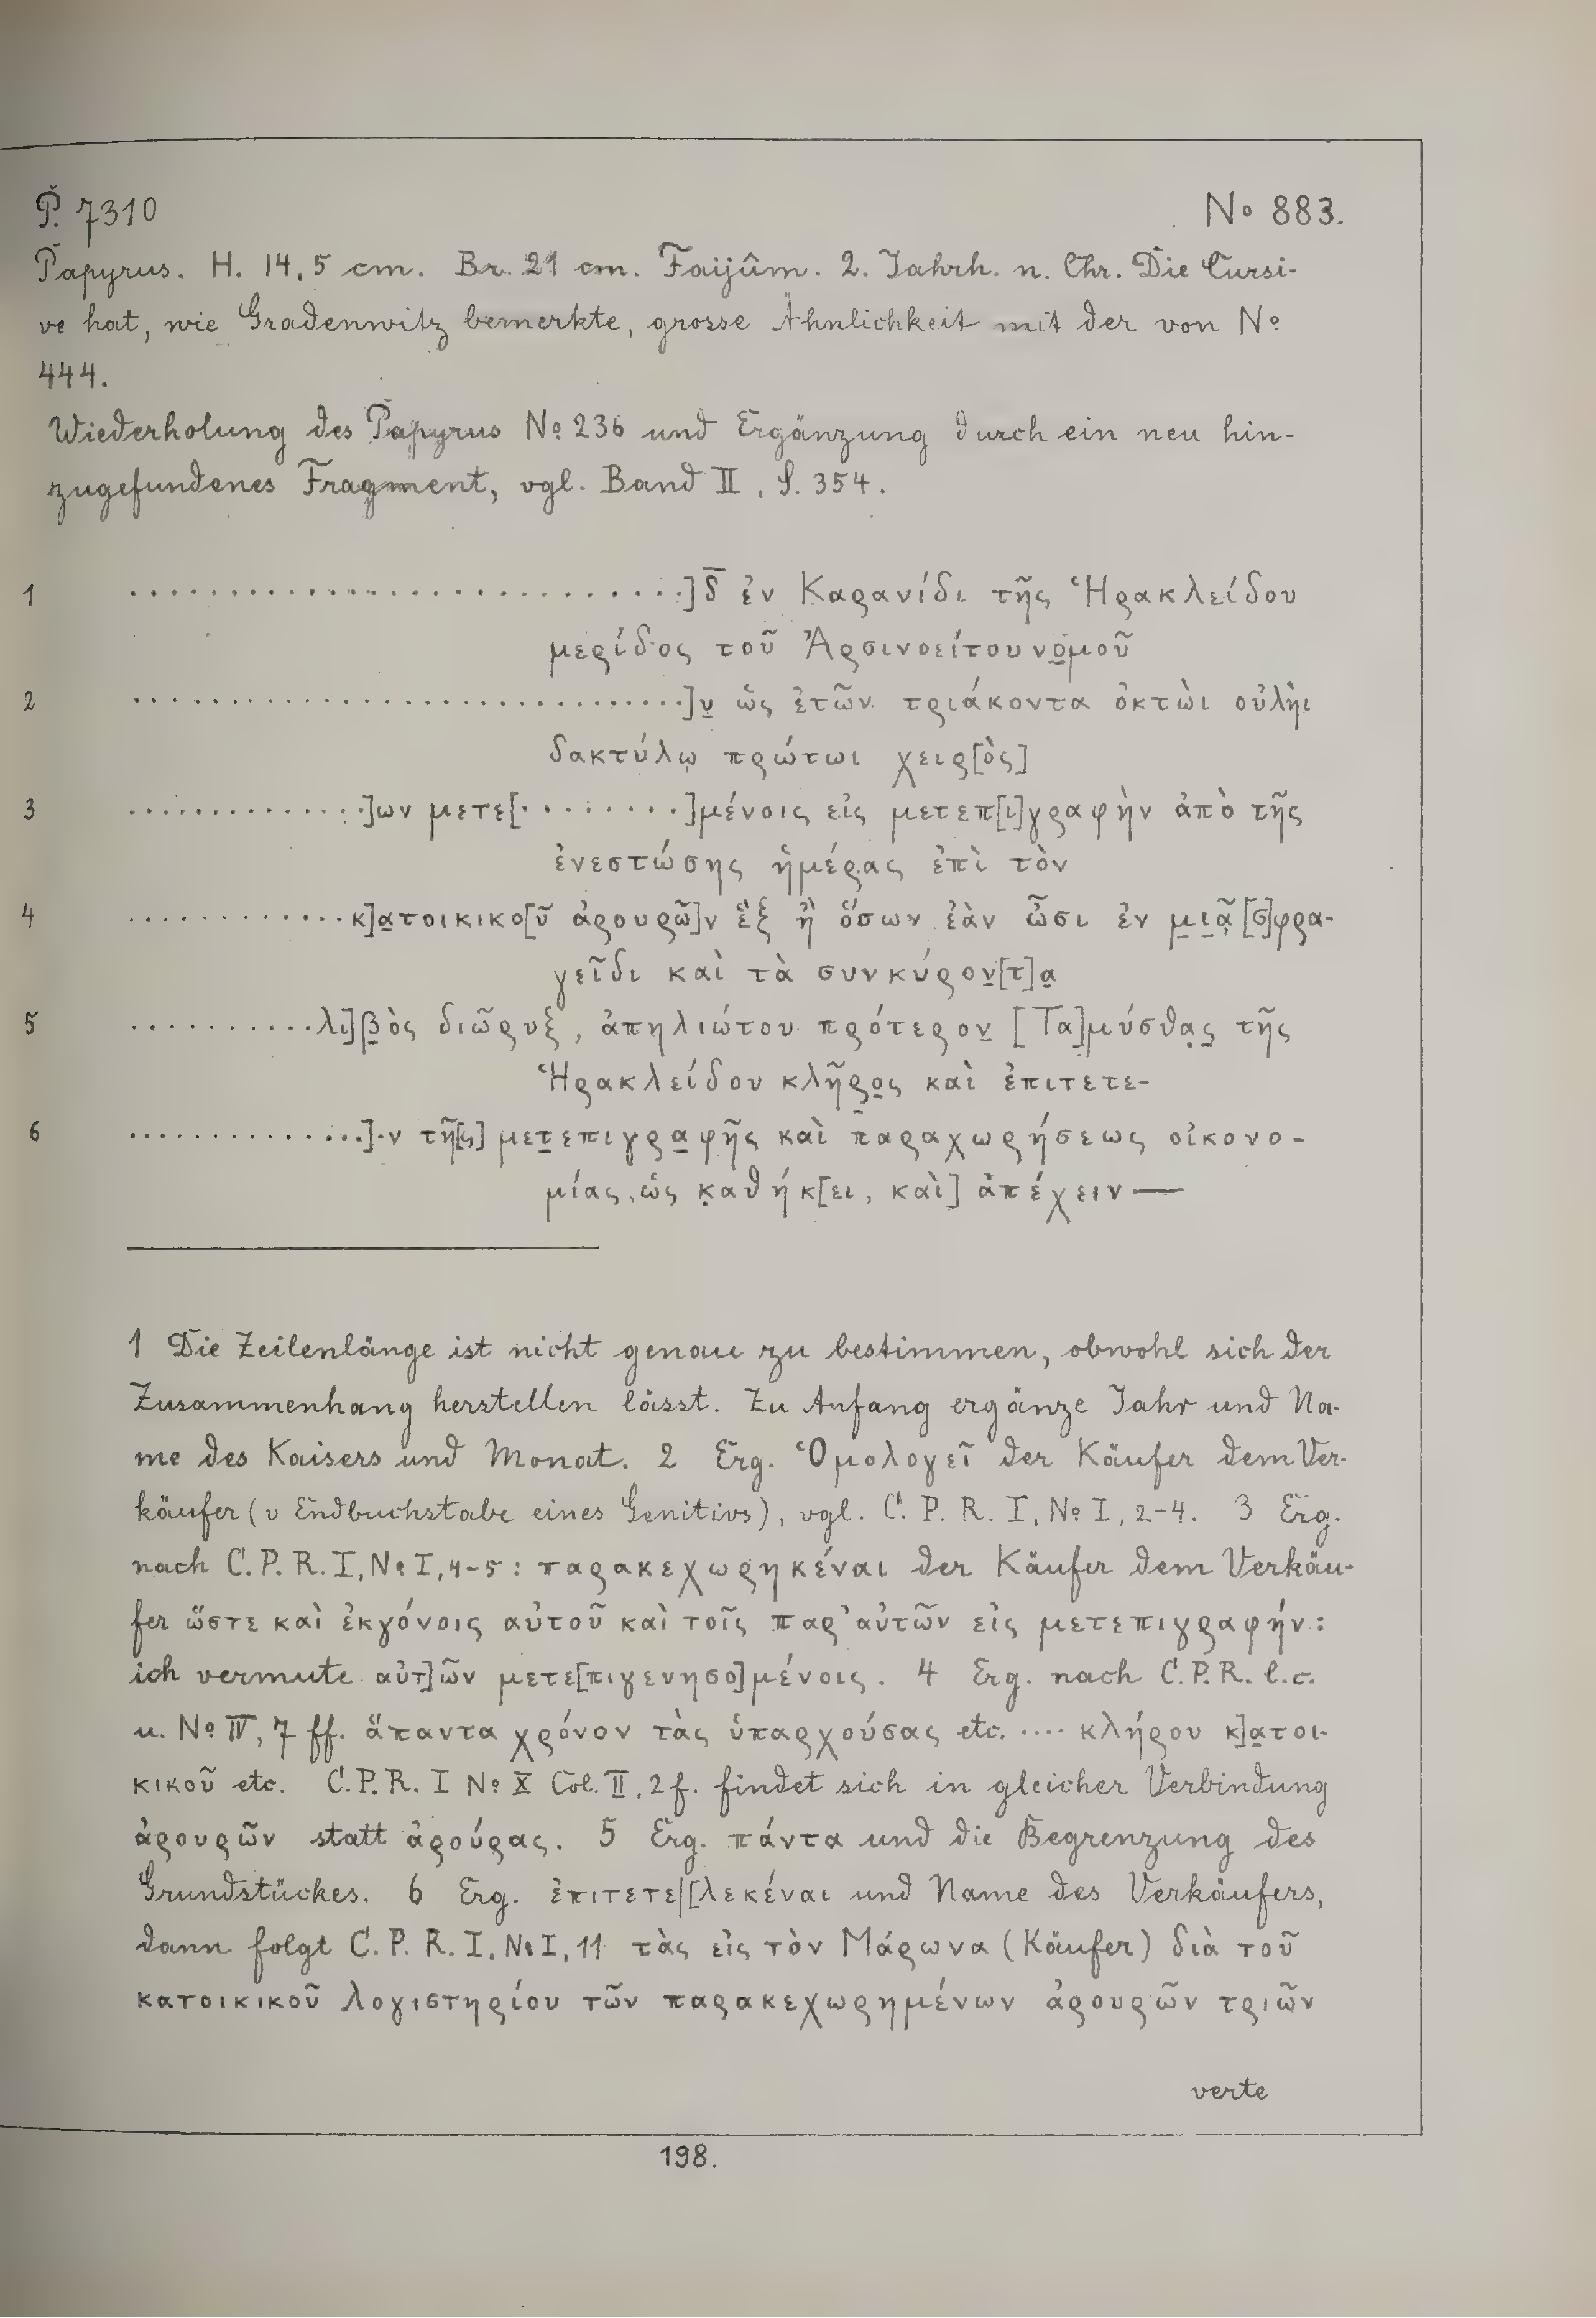 P. 7310 No 883.
Papyrus. H. 14,5 cm. Br. 21 cm. Faijûm. 2. Jahrh. n. Chr. Die Cursi-
ve hat, wie Gradenwitz bemerkte, grosse Ähnlichkeit mit der von No
444.
Wiederholung des Papyrus No 236 und Ergänzung durch ein neu hin-
zugefundenes Fragment, vgl. Band II, S. 354.
1 ..............................]δ̅ ἐν Καρανίδι τῆς Ἡρακλείδου
μερίδος τοῦ Ἀρσινοείτου νο̲μοῦ
2 ..............................]υ̲ ὡς ἐτῶν τριάκοντα ὀκτὼι οὐλὴι
δακτύλῳ πρώτωι χειρ[ὸς]
3 ..............]ων μετε[.........]μένοις εἰς μετεπ[ι]γραφὴν ἀπὸ τῆς
ἐνεστώσης ἡμέρας ἐπὶ τὸν
4 ............κ]α̲τοικικο[ῦ ἀρουρῶ]ν ἓξ ἢ ὅσων ἐὰν ὦσι ἐν μ̲ι̲ᾷ [σ]φρα-
γεῖδι καὶ τὰ συνκύρον̲[τ]α̲
5 ...........λι]β̲ὸς διῶρυξ, ἀπηλιώτου πρότερον̲ [Τα]μύσθα̣ς̲ τῆς
Ἡρακλείδου κλῆρ̲ο̲ς καὶ ἐπιτετε-
6 ..............].ν τῆ[ς] μετ̲επιγρα̲φῆς καὶ παραχωρήσεως οἰκονο-
μίας, ὡς κ̣αθήκ[ει, καὶ] ἀπέχειν —
1 Die Zeilenlänge ist nicht genau zu bestimmen, obwohl sich der
Zusammenhang herstellen lässt. Zu Anfang ergänze Jahr und Na-
me des Kaisers und Monat. 2 Erg. Ὁμολογεῖ der Käufer dem Ver-
käufer (υ Endbuchstabe eines Genitivs), vgl. C. P. R. I, No I, 2-4. 3 Erg.
nach C. P. R. I, No I, 4-5: παρακεχωρηκέναι der Käufer dem Verkäu-
fer ὥστε καὶ ἐκγόνοις αὐτοῦ καὶ τοῖς παρ' αὐτῶν εἰς μετεπιγραφήν:
ich vermute αὐτ]ῶν μετε[πιγενησο]μένοις. 4 Erg. nach C. P. R. l. c.
u. No IV, 7 ff. ἅπαντα χρόνον τὰς ὑπαρχούσας etc. .... κλήρου κ]α̲τοι-
κικοῦ etc. C. P. R. I No X Col. II, 2 f. findet sich in gleicher Verbindung
ἀρουρῶν statt ἀρούρας. 5 Erg. πάντα und die Begrenzung des
Grundstückes. 6 Erg. ἐπιτετε|[λεκέναι und Name des Verkäufers,
dann folgt C. P. R. I, No I, 11 τὰς εἰς τὸν Μάρωνα (Käufer) διὰ τοῦ
κατοικικοῦ λογιστηρίου τῶν παρακεχωρημένων ἀρουρῶν τριῶν
verte
198.